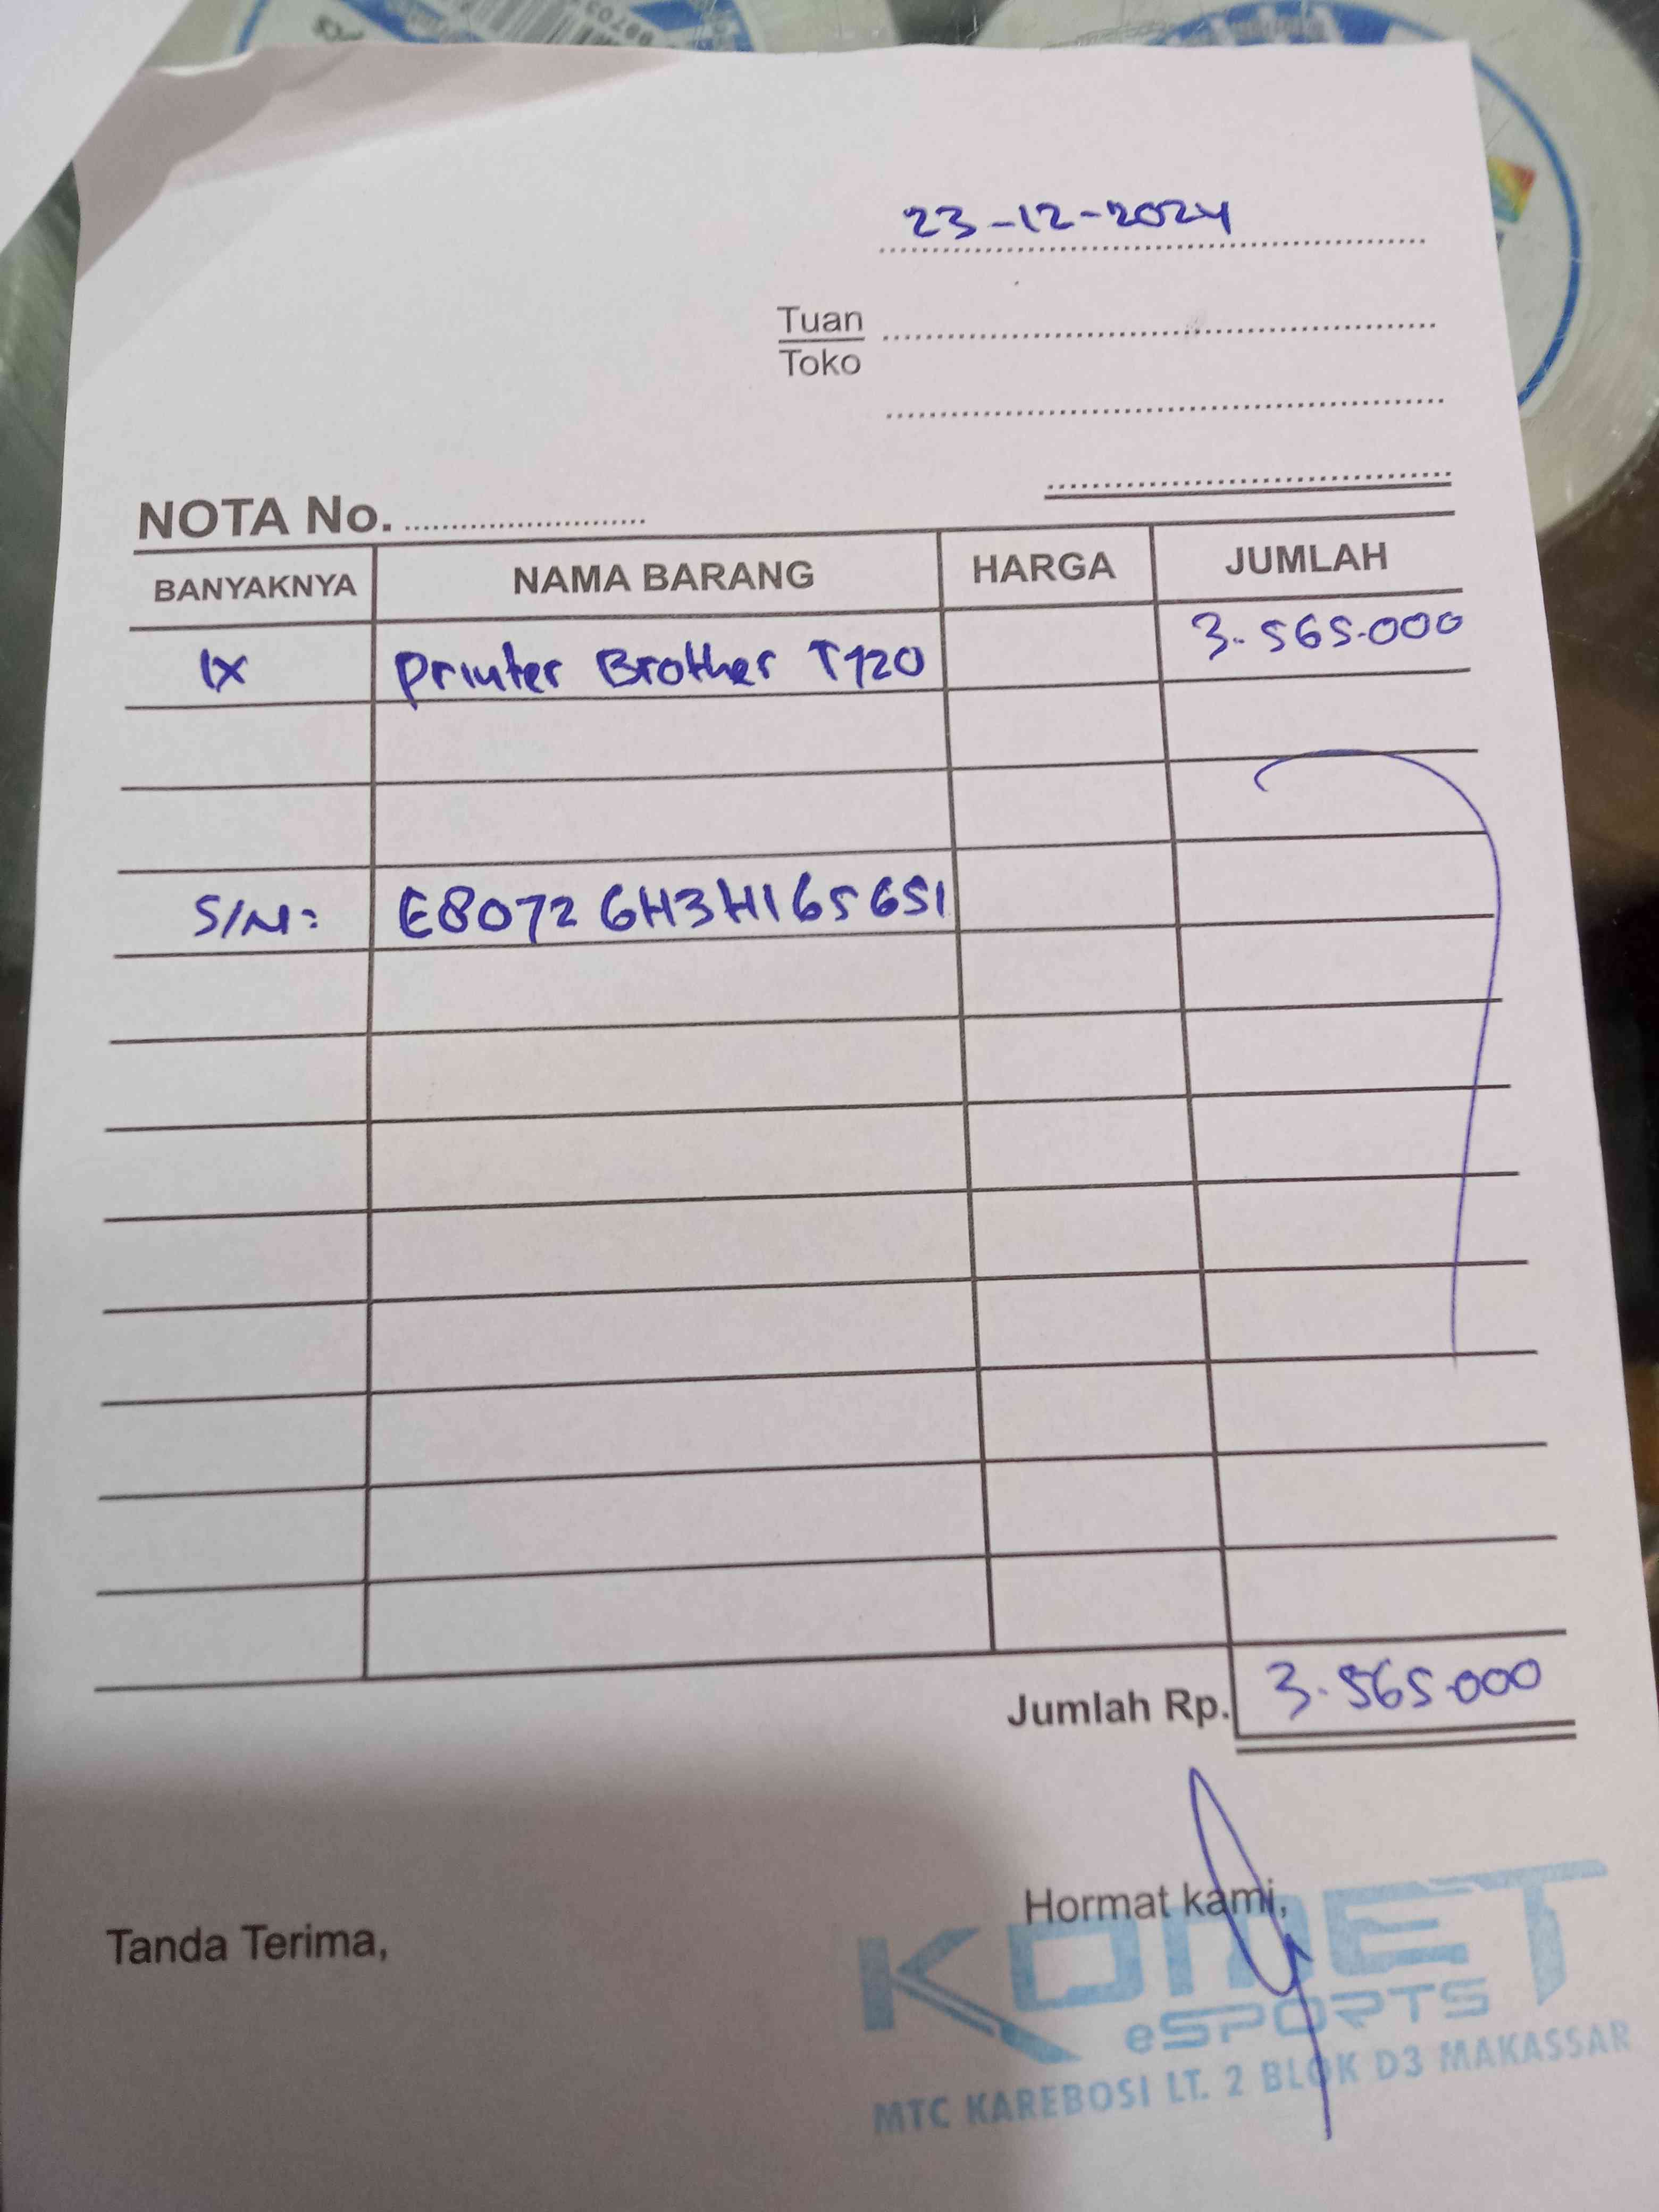 23-12-2024
Tuan
Toko
NOTA No.
BANYAKNYA NAMA BARANG HARGA JUMLAH
1x Printer Brother T720 3.565.000
S/N: E80726H3H165651
Jumlah Rp. 3.565.000
Tanda Terima,
Hormat kami,
KOMET
eSPORTS
MTC KAREBOSI LT. 2 BLOK D3 MAKASSAR